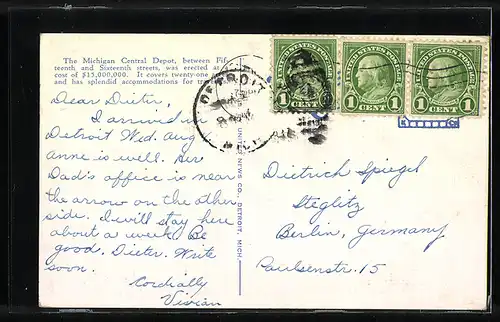 The Michigan Central Depot, between Fif-
teenth and Sixteenth streets, was erected at
cost of $15,000,000. It covers twenty-one
and has splendid accommodations for
Dear Dieter,
I arrived in
Detroit Wed. Aug
anne is well. Her
Dad's office is near
the arrow on the other
side. I will stay here
about a week. Be
good, Dieter. Write
soon.
Cordially
Vivian
UNITED NEWS CO., DETROIT, MICH.
DETROIT
MICH
1 CENT 1
1 CENT 1
1 CENT 1
Dietrich Spiegel
Steglitz
Berlin, Germany
Paulsenstr. 15